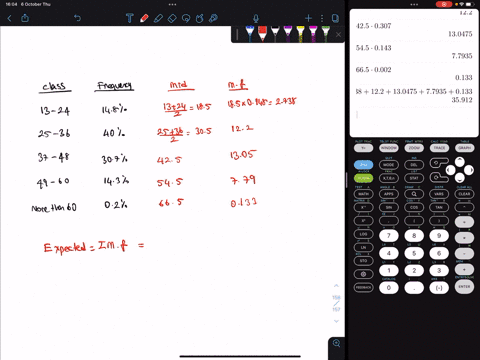 16:04 6 October Thu
class Frequency mid m.f
13-24 14.8% 13+24/2 = 18.5 18.5×0.148 = 2.738
25-36 40% 25+36/2 = 30.5 12.2
37-48 30.7% 42.5 13.05
49-60 14.3% 54.5 7.79
More than 60 0.2% 66.5 0.133
Expected = Σm.f =
12.2
42.5 · 0.307
13.0475
54.5 · 0.143
7.7935
66.5 · 0.002
0.133
38 + 12.2 + 13.0475 + 7.7935 + 0.133
35.912
WINDOW ZOOM TRACE GRAPH
MODE DEL
ALPHA X,T,θ,n STAT
MATH APPS PRGM VARS CLEAR
SIN COS TAN ^
( ) ÷
LOG 7 8 9 ×
LN 4 5 6 −
STO 1 2 3 +
0 . (-) ENTER
FEEDBACK
157